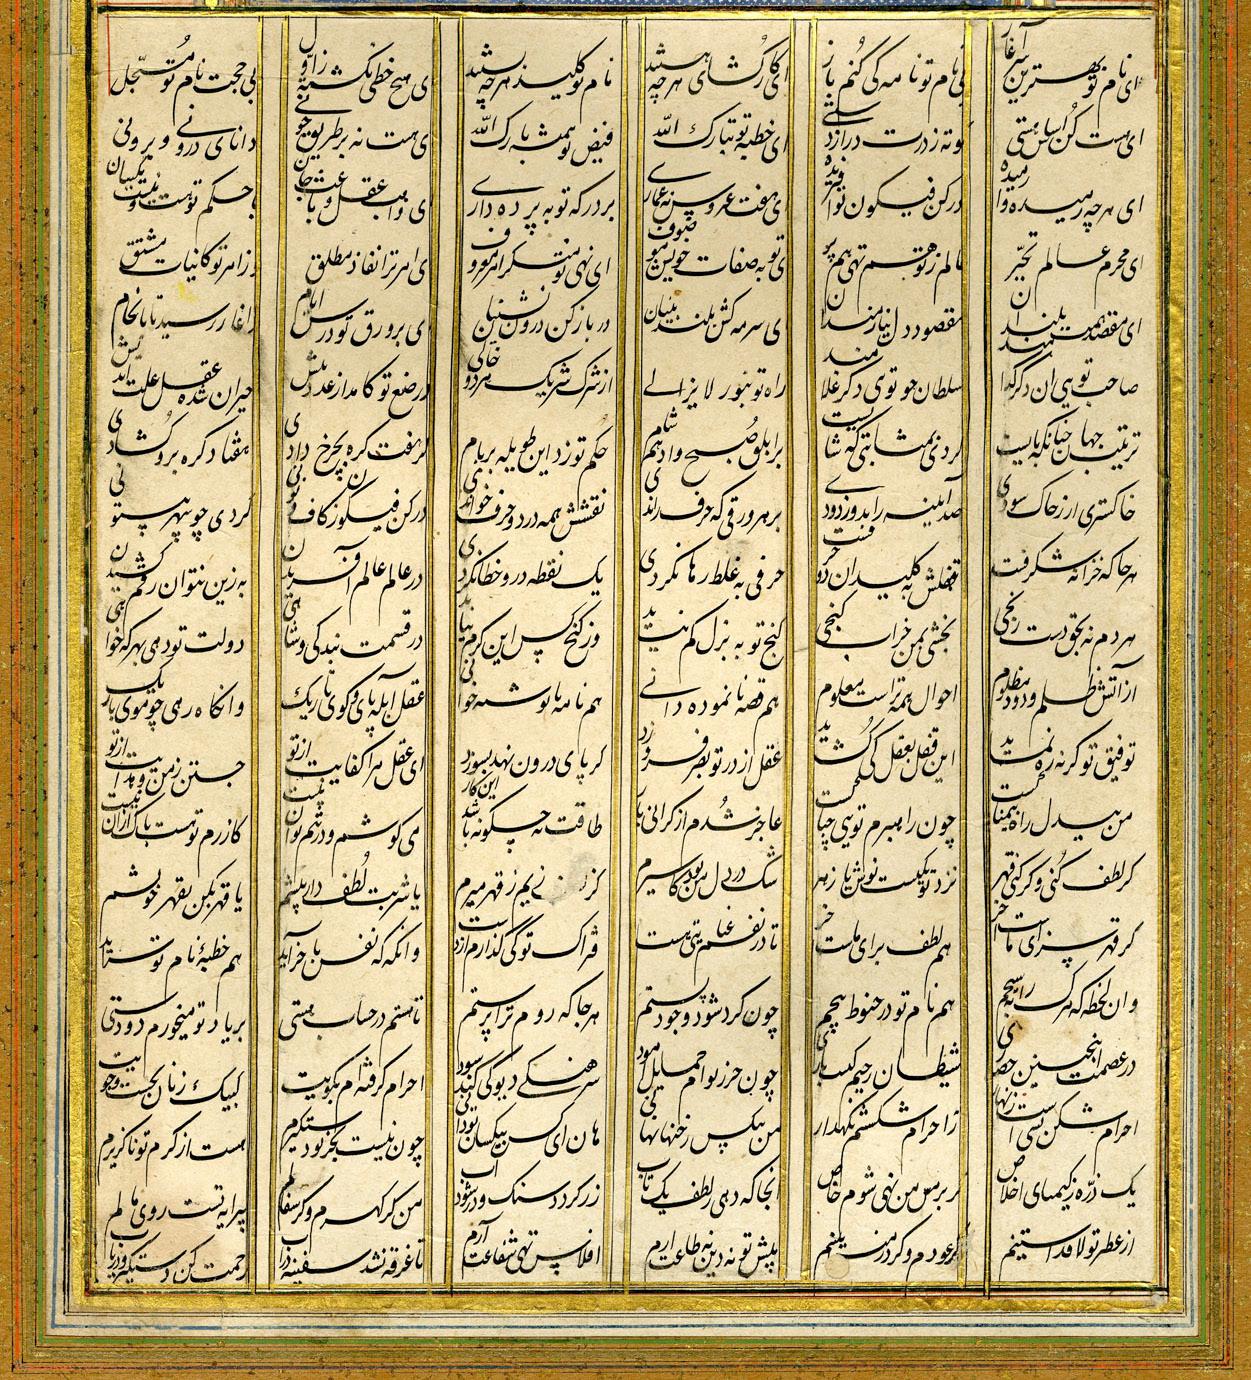 ای نام تو بهترین سرآغاز بی نام تو نامه کی کنم باز ای کارگشای هرچه هستند نام تو کلید هرچه بستند ای هیچ خطی نگشته ز اول بی حجت نام تو مسجل
ای هست کن اساس هستی کوته ز درت درازدستی ای خطبه تو تبارک الله فیض تو همیشه بارک الله ای هست نه بر طریق چونی دانای درونی و برونی
ای هرچه رمیده وا رمیده در کن فیکون تو آفریده ای هفت عروس نه عماری بر درگه تو به پرده داری ای واهب عقل و باعث جان با حکم تو هست و نیست یکسان
ای محرم عالم تحیّر عالم ز تو هم تهی هم پر ای تو به صفات خویش موصوف ای نهی تو منکر امر معروف ای امر ترا نفاذ مطلق وز امر تو کائنات مشتق
ای مقصد همت بلندان مقصود دل نیازمندان ای سرمه کش بلند بینان در باز کن درون نشینان ای بر ورق تو درس ایام ز آغاز رسیده تا بانجام
صاحب تویی ان دگر کدامند سلطان چو توی دگر غلامند راه تو بنور لایزالی از شرک شریک هردو خالی در صنع تو کامد از عدد بیش حیران شده عقل علت اندیش
ترتیب جهان چنانکه بایست کردی بمثابتی که شایست بر ابلق صبح و ادهم شام حکم تو زد این طویله بر بام گر هفت گره بچرخ دادی هفتاد گره برو گشادی
خاکستری ار ز خاک سودی صد آینه را بدو زدودی بر هر ورقی که حرف راندی نقشش همه در دو حرف خواندی در کن فیکون ز کاف و نونی کردی چو سپهر بیستونی
هرجا که خزانه شگرفست قفلش به کلید ان دو حرفست حرفی به غلط رها نکردی یک نقطه درو خطا نکردی در عالم عالم آفریدن به زین نتوان رقم کشیدن
هر دم نه بحق دست رنجی بخشی بمن خراب گنجی گنج تو به بذل کم نیاید وز گنج کس این کرم نیاید در قسمت بندگی و شاهی دولت تو دهی بهر که خواهی
از آتش ظلم و دود مظلوم احوال همه تراست معلوم هم قصه نانموده دانی هم نامه نانوشته خوانی عقل آبله پای و کوی تاریک وانگاه رهی چو موی باریک
توفیق تو گر نه ره نماید این قفل بعقل کی گشاید عقل از در تو بصر فروزد گر پای درون نهد بسوزد ای عقل مرا کفایت از تو جستن ز من و هدایت از تو
من بیدل راه بیمناکست چون راهبرم تویی چه باکست عاجز شدم از گرانی بار طاقت نه چگونه باشد این کار می کوشم و در تنم توان نیست کازرم تو هست باک از آن نیست
گر لطف کنی و گر کنی قهر نزد تو یکیست نوش یا زهر شک در دل من بود کاسیرم کز زیم ز قهر میرم یا شربت لطف دار پیشم یا قهر مکن بقهر خویشم
گر قهر سزای ماست آخر هم لطف برای ماست آخر تا در نفسم عنایتی هست فتراک تو کی گذارم از دست وانگه که نفس بآخر آید هم خطبهٔ نام تو سراید
وان لحظه که مرگ را بسیجم هم نام تو در حنوط پیچم چون گرد شود وجود پستم هرجا که روم ترا پرستم تا هستم در حساب هستی بر یاد تو میخورم دودستی
در عصمت اینچنین حصاری شیطان رجیم کیست باری چون حرز توام حمایل آمود سرهنگی دیو کی کند سود احرام گرفته ام بکویت لبیک زنان بجست و جویت
احرام شکن بسی است زنهار ز احرام شکستنم نگهدار من بیکس رخنها نهانی هان ای کس بیکسان تو دانی چون نیست بجز تو دستگیرم هست از کرم تو ناگزیرم
یک ذرّه ز کیمیای اخلاص گر بر مس من نهی شوم خاص آنجا که دهی ز لطف یک تاب زر گردد سنگ و در شود آب من گر گهرم و گر سفالم پیرایه تست روی مالم
از عطر تو لافد آستینم گر عودم و گر درمنه اینم پیش تو نه دین نه طاعت آرم افلاس تهی شفاعت آرم تا غرقه نشد سفینه در آب رحمت کن دستگیر و دریاب